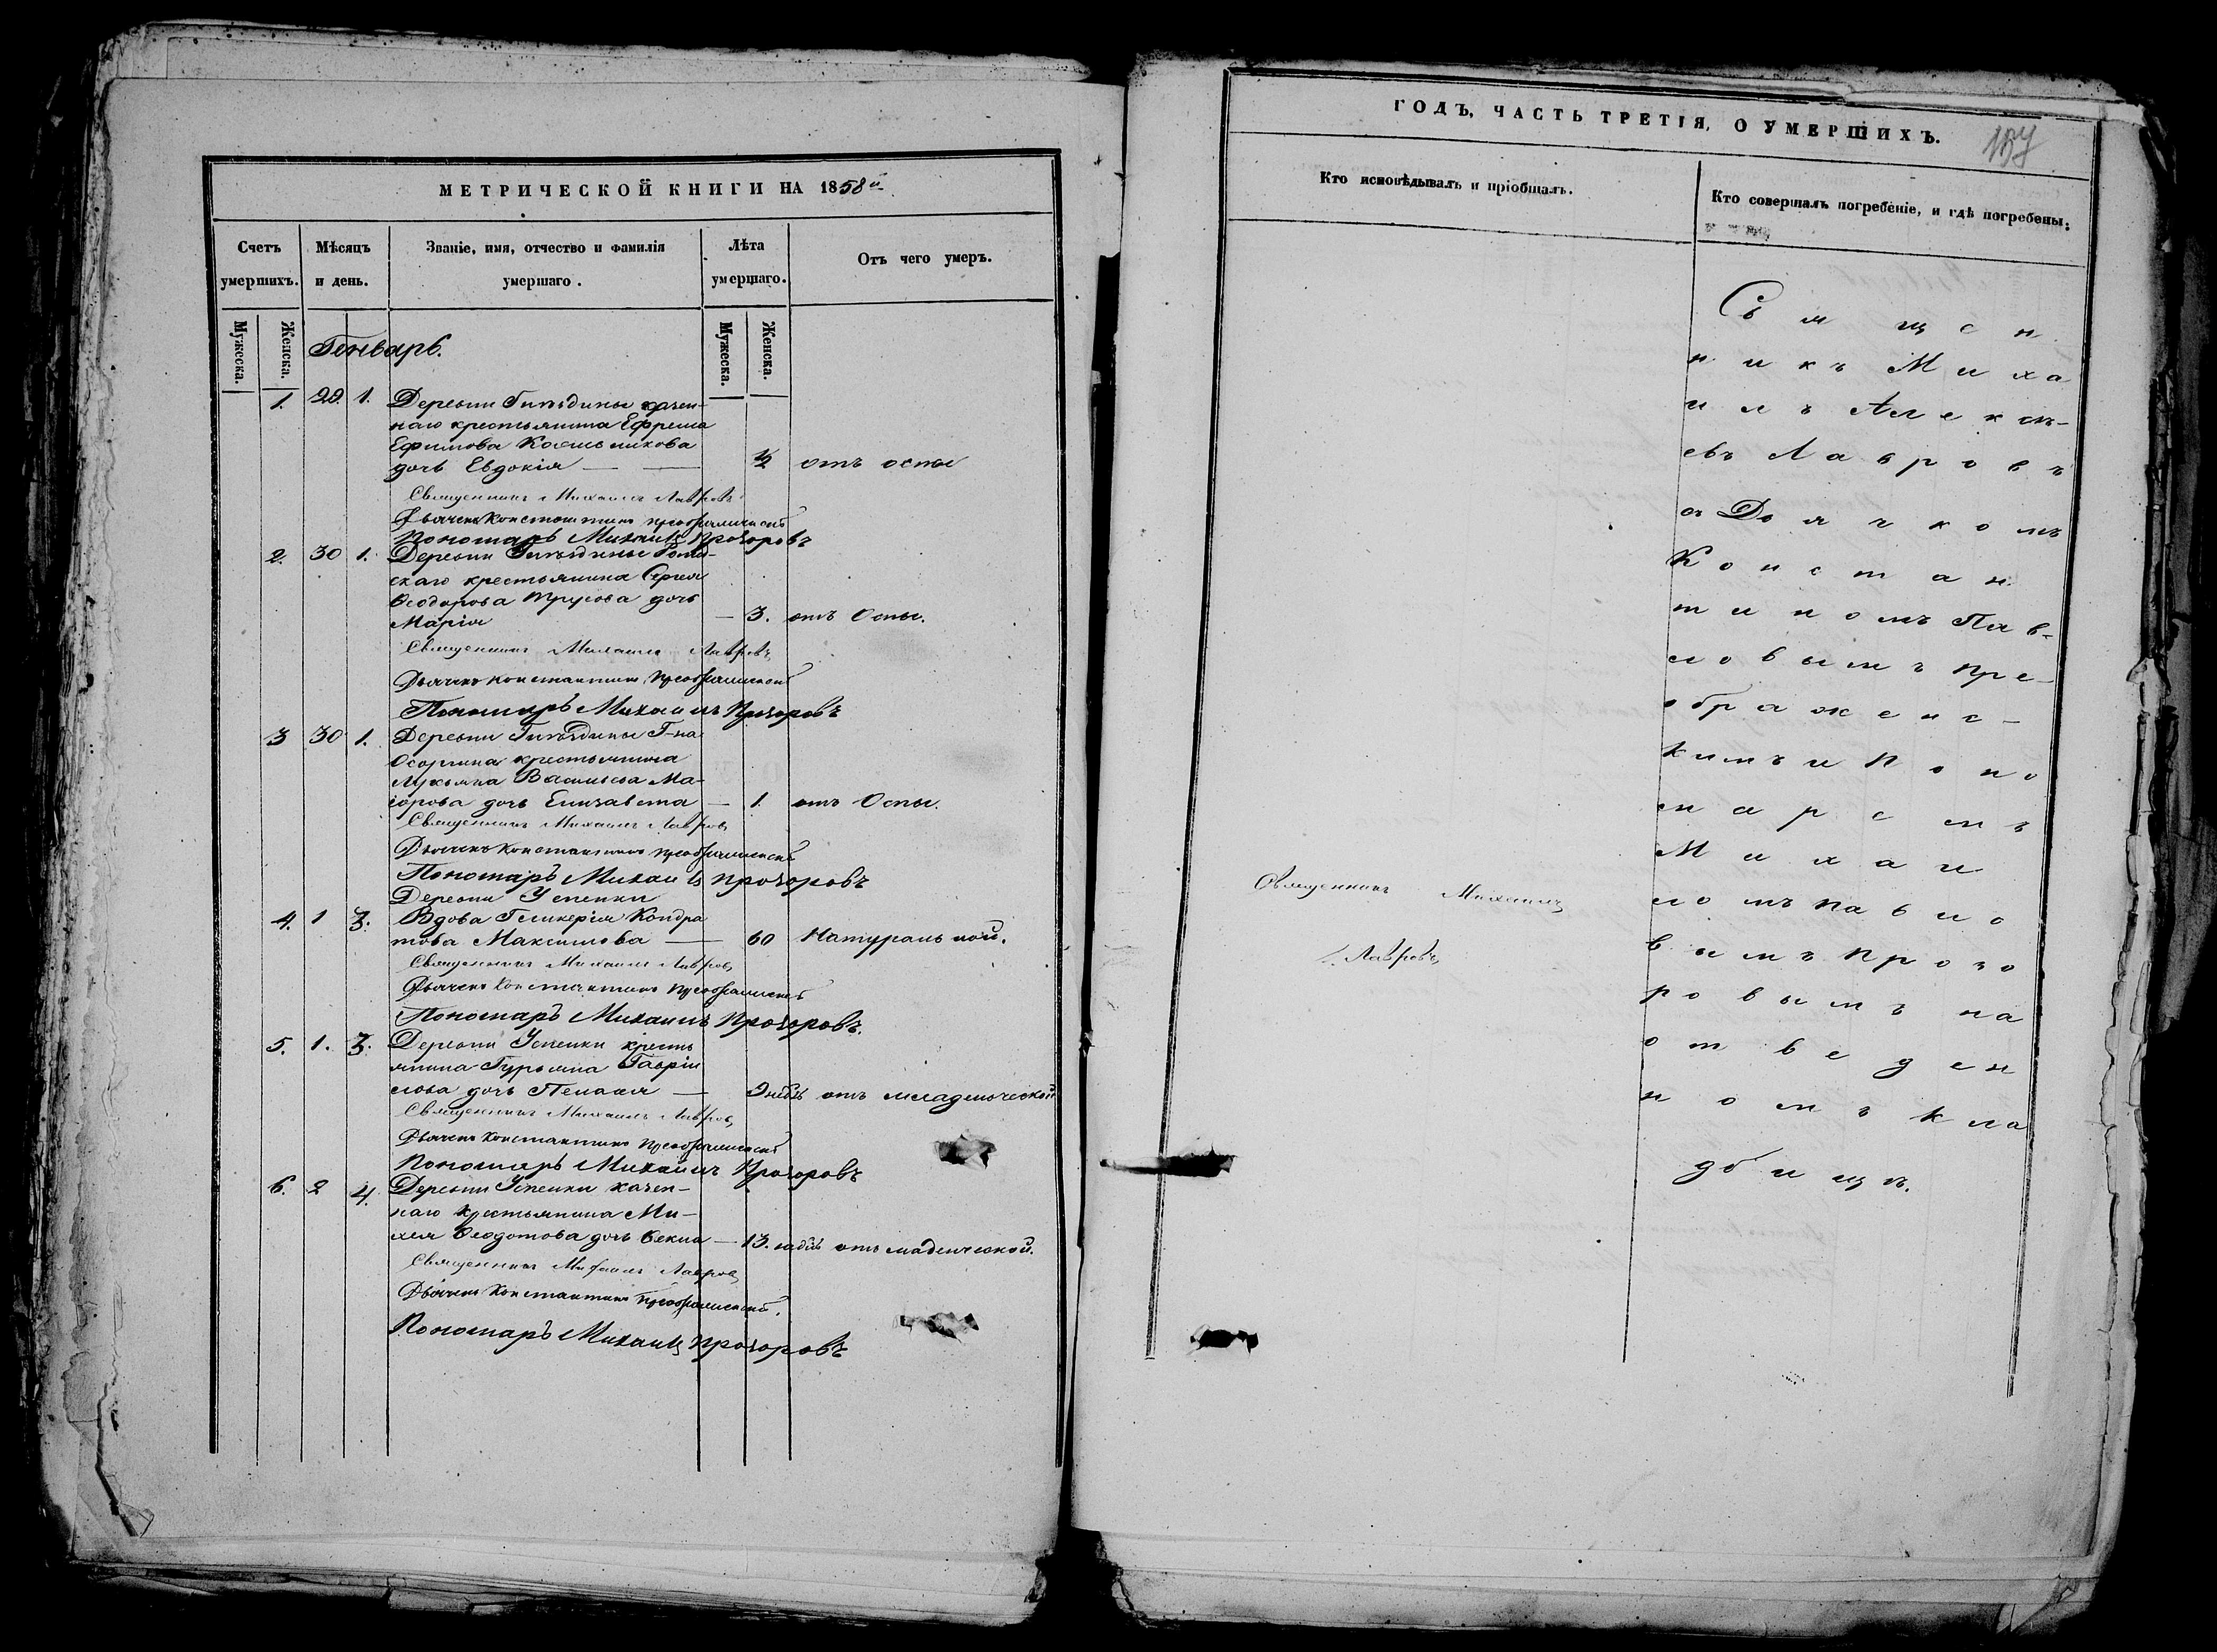 МЕТРИЧЕСКОЙ КНИГИ НА 1858й
Счетъ умершихъ.
Мѣсяцъ и день.
Званіе, имя, отчество и фамилія умершаго.
Лѣта умершаго.
Отъ чего умеръ.
Мужеска.
Женска.
Мужеска.
Женска.
Генварь.
1. 29. 1. Деревни казен-
наго крестьянина Ефрема
Ефимова
дочь Евдокія — — ½ отъ оспы
Священникъ Михаилъ Лавровъ
Дьячекъ Константинъ Преображенскій
Пономарь Михаилъ Прозоровъ
2. 30 1. Деревни
скаго крестьянина Сергея
Ѳеодорова Трусова дочь
Марія — 3. отъ Оспы.
Священникъ Михаилъ Лавровъ
Дьячекъ Константинъ Преображенскій
Пономарь Михаилъ Прозоровъ
3 30 1. Деревни Г-на
Осоргина крестьянина
Лукьяна Васильева Ма-
іорова дочь Елизавета — 1. отъ Оспы.
Священникъ Михаилъ Лавровъ
Дьячекъ Константинъ Преображенскій
Пономарь Михаилъ Прозоровъ
Деревни Успенки
4. 1 3. Вдова Гликерія Кондра
това Максимова — 60 Натуральной.
Священникъ Михаилъ Лавровъ
Дьячекъ Константинъ Преображенскій
Пономарь Михаилъ Прозоровъ.
5. 1. 3. Деревни Успенки кресть
янина Гурьяна Гаврі
лова дочь Пелагея — отъ младенческой
Священникъ Михаилъ Лавровъ
Дьячекъ Константинъ Преображенскій
Пономарь Михаилъ Прозоровъ
6. 2 4. Деревни Успенки казен-
наго крестьянина Ми-
хея Ѳеодотова дочь Ѳекла — 13. отъ младенческой.
Священникъ Михаилъ Лавровъ
Дьячекъ Константинъ Преображенскій.
Пономарь Михаилъ Прозоровъ
ГОДЪ, ЧАСТЬ ТРЕТІЯ, О УМЕРШИХЪ.
157
Кто исповѣдывалъ и пріобщалъ.
Кто совершалъ погребеніе, и гдѣ погребены.
Священникъ Михаилъ
Лавровъ
Священ
никъ Миха
илъ Алексѣ-
евъ Лавровъ
съ Дьячкомъ
Констан
тиномъ Пав-
ловымъ Пре-
ображенс-
кимъ и Поно
маремъ
Михаи
ломъ Павло
вымъ Прозо
ровымъ на
отведен
номъ кла
дбищѣ.